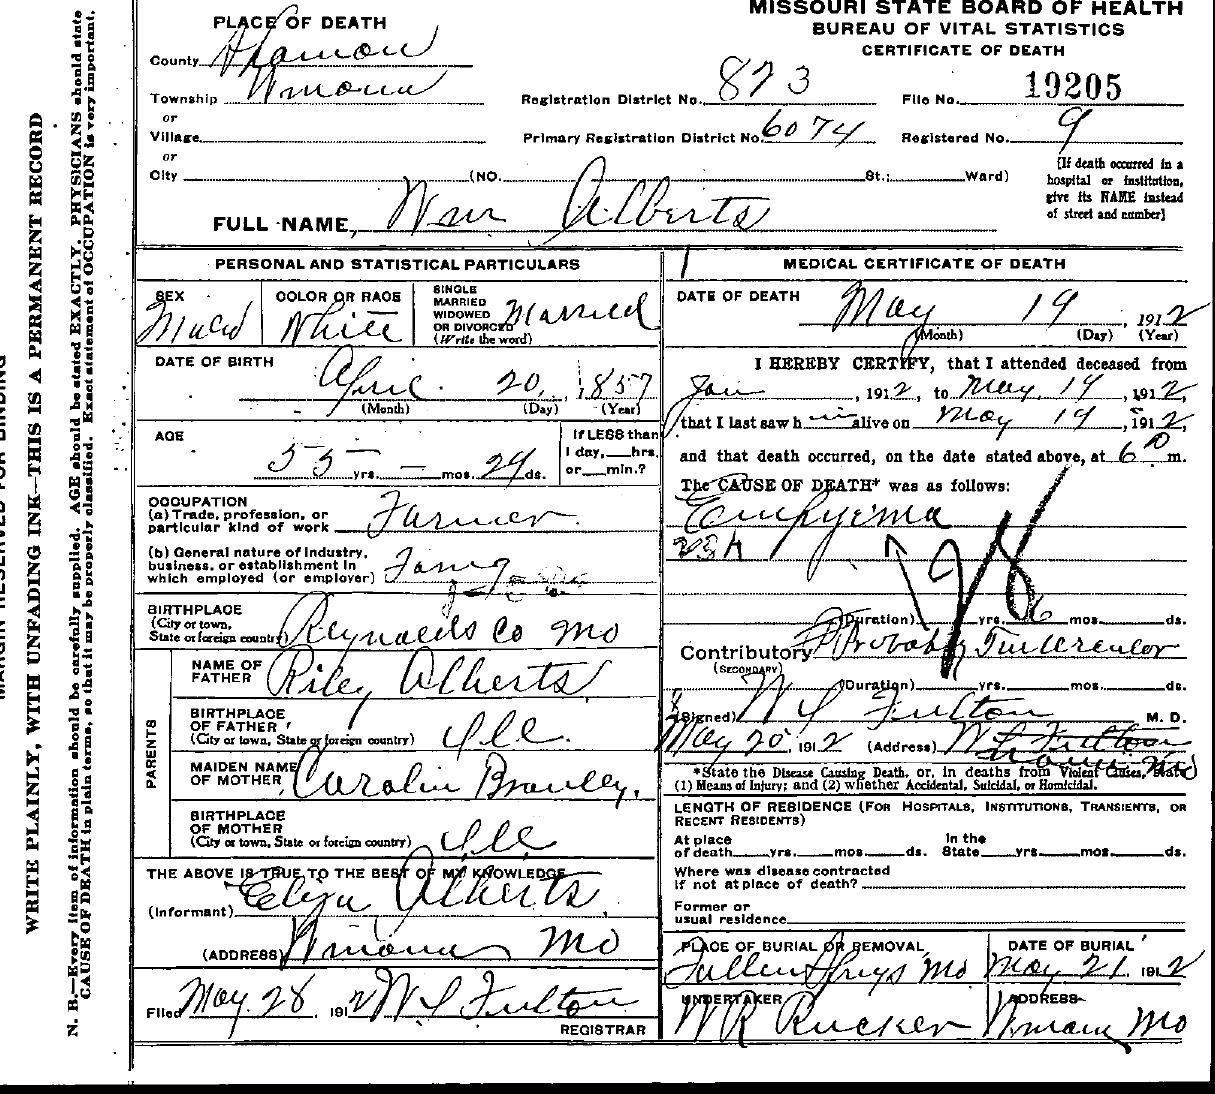 MISSOURI STATE BOARD OF HEALTH
BUREAU OF VITAL STATISTICS
CERTIFICATE OF DEATH
PLACE OF DEATH
County
Township
or
Village
or
City (NO. St.; Ward)
Registration District No. 873 File No. 19205
Primary Registration District No. 6074 Registered No. 9
[If death occurred in a
hospital or institution,
give its NAME instead
of street and number]
FULL NAME, Wm Alberts
PERSONAL AND STATISTICAL PARTICULARS
SEX
COLOR OR RACE White
SINGLE
MARRIED
WIDOWED
OR DIVORCED
(Write the word) Married
DATE OF BIRTH
April 20, 1857
(Month) (Day) (Year)
AGE
55 yrs. - mos. 29 ds.
If LESS than
1 day, hrs.
or min.?
OCCUPATION
(a) Trade, profession, or
particular kind of work Farmer
(b) General nature of Industry,
business, or establishment in
which employed (or employer)
BIRTHPLACE
(City or town,
State or foreign country) Reynolds Co Mo
PARENTS
NAME OF
FATHER Riley Alberts
BIRTHPLACE
OF FATHER
(City or town, State or foreign country) Ill.
MAIDEN NAME
OF MOTHER Carolin
BIRTHPLACE
OF MOTHER
(City or town, State or foreign country) Ill
THE ABOVE IS TRUE TO THE BEST OF MY KNOWLEDGE
(Informant) Alberts
(ADDRESS) Winona Mo
Filed May 28, 1912 W L Fulton
REGISTRAR
MEDICAL CERTIFICATE OF DEATH
DATE OF DEATH
May 19, 1912
(Month) (Day) (Year)
I HEREBY CERTIFY, that I attended deceased from
Jan, 1912, to May, 19, 1912,
that I last saw him alive on May 19, 1912,
and that death occurred, on the date stated above, at 6 P m.
The CAUSE OF DEATH* was as follows:
Empyema
(Duration) yrs. 6 mos. ds.
Contributory Probably Tubercular
(SECONDARY)
(Duration) yrs. mos. ds.
(Signed) W L Fulton M. D.
May 20, 1912 (Address) W L Fulton
Winona Mo
*State the Disease Causing Death, or, in deaths from Violent Causes, state
(1) Means of Injury; and (2) whether Accidental, Suicidal, or Homicidal.
LENGTH OF RESIDENCE (FOR HOSPITALS, INSTITUTIONS, TRANSIENTS, OR
RECENT RESIDENTS)
At place In the
of death yrs. mos. ds. State yrs. mos. ds.
Where was disease contracted
if not at place of death?
Former or
usual residence
PLACE OF BURIAL OR REMOVAL
Mo
DATE OF BURIAL
May 21, 1912
UNDERTAKER
W R Rucker
ADDRESS
Winona Mo
WRITE PLAINLY, WITH UNFADING INK—THIS IS A PERMANENT RECORD
N. B.—Every item of information should be carefully supplied. AGE should be stated EXACTLY. PHYSICIANS should state
CAUSE OF DEATH in plain terms, so that it may be properly classified. Exact statement of OCCUPATION is very important.